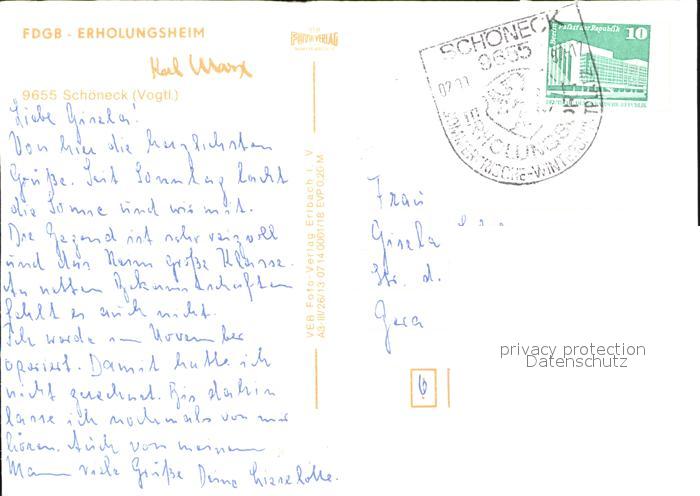 FDGB - ERHOLUNGSHEIM
Karl Marx
9655 Schöneck (Vogtl.)
Liebe Gisela!
Von hier die herzlichsten
Grüße. Seit Sonntag lacht
die Sonne und wir mit.
Die Gegend ist sehr reizvoll
und das Heim große Klasse.
An netten Bekanntschaften
fehlt es auch nicht.
Ich werde im November
operiert. Damit hatte ich
nicht gerechnet. Bis dahin
lasse ich nochmals von mir
hören. Auch von meinem
Mann viele Grüße Deine Lieselotte.
VEB Foto-Verlag Erlbach i. V.
A3-III/26/13 07 14 0061/18 EVP 0,20 M
FOTO VERLAG
SCHÖNECK
9655
ERHOLUNGSORT
10
Frau
Gisela
Str. d.
Gera
6
privacy protection
Datenschutz